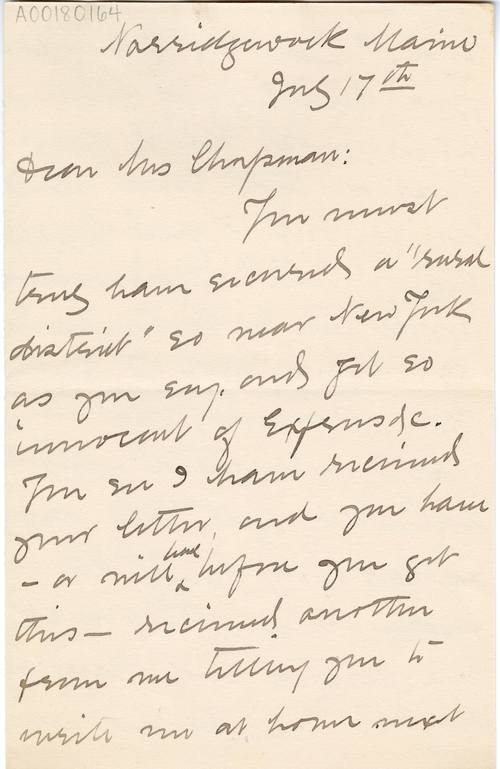 A00180164
Norridgewock Maine
July 17th
Dear Mrs Chapman:
You must
truly have secured a "rural
district" so near New York
as you say, and yet so
innocent of Express &c.
You see I have received
your letter, and you have
– or will have before you get
this – received another
from me telling you to
write me at home next